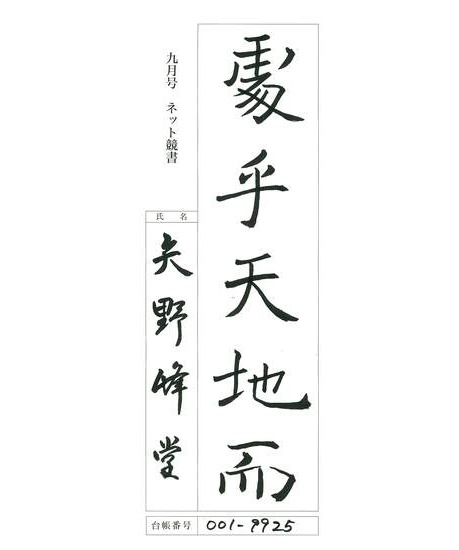 處乎天地而
九月号　ネット競書
氏　名
矢野峰堂
台帳番号 001-9925